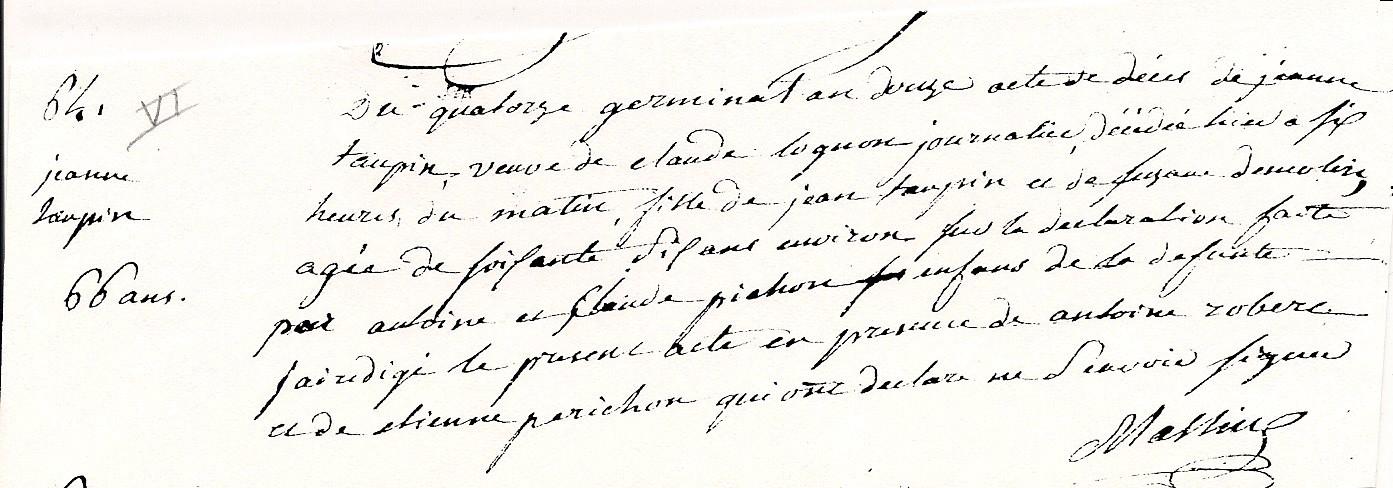 64.
VI
jeanne
taupin
66 ans.
Du quatorze germinal an douze acte de décès de jeanne
taupin, veuve de claude lognon journalier, décédée hier a six
heures du matin, fille de jean taupin et de susane desmolin,
agée de soisante six ans environ sur la declaration faite
par antoine et claude pichon enfans de la defunte
j'ai redigé le present acte en presence de antoine robert
et de etienne perichon qui ont declare ne Savoir signer